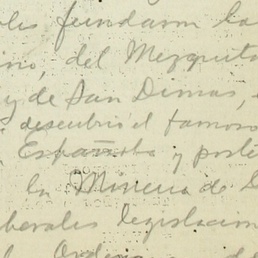 fundaron la
del Mezquita
y de San Dimas,
descubrió el famoso
Española y poste
la Minera de
liberales legislacion